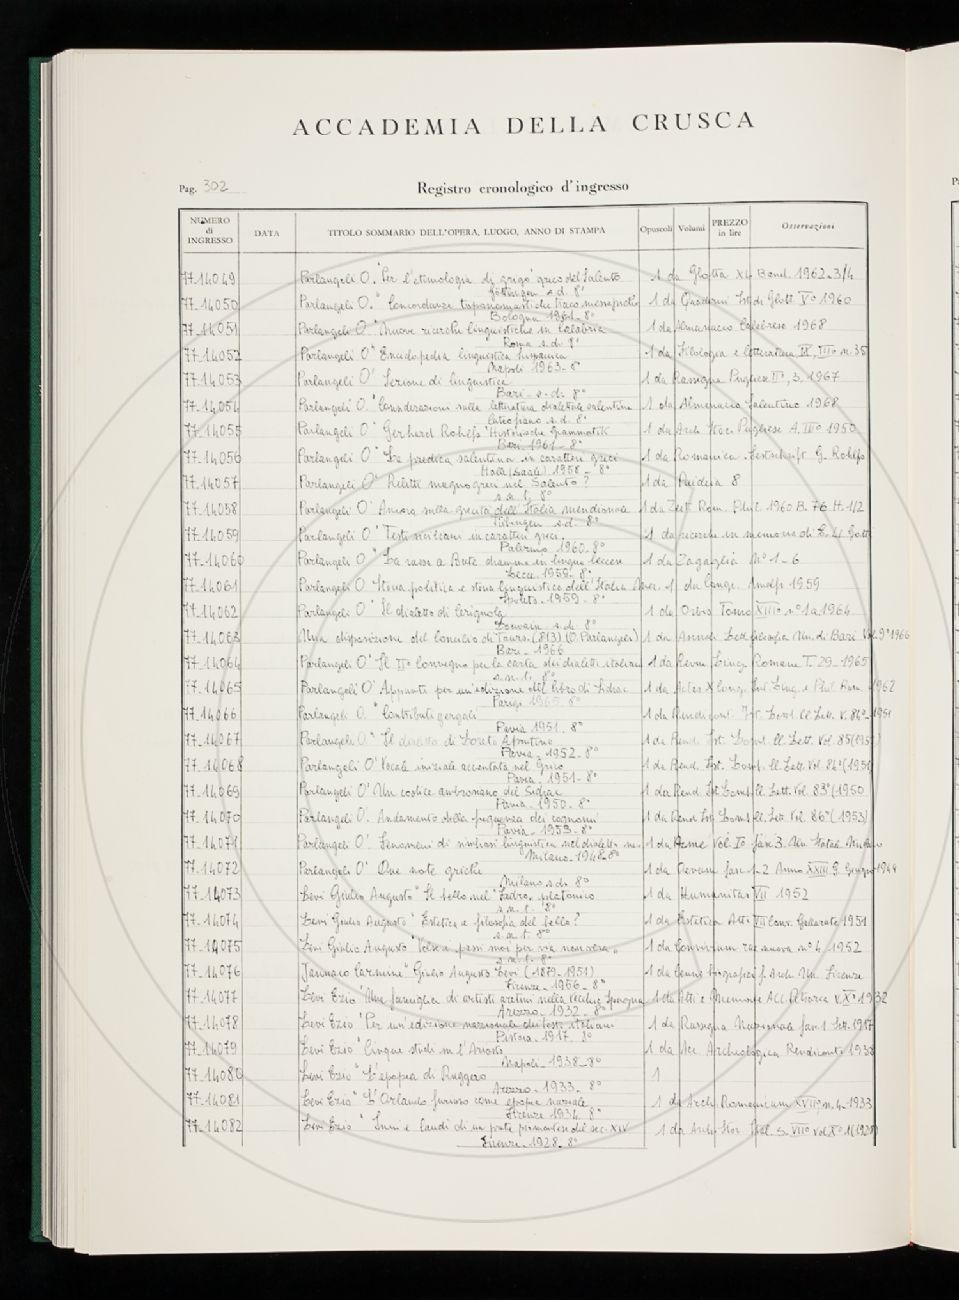 ACCADEMIA DELLA CRUSCA
Pag. 302
Registro cronologico d'ingresso
NUMERO di INGRESSO DATA TITOLO SOMMARIO DELL'OPERA, LUOGO, ANNO DI STAMPA Opuscoli Volumi PREZZO in lire Osservazioni
77-14049 Parlangeli O. "Per l'etimologia di grigo" greco del Salento 1 da Glotta XL Band. 1962-3/4
Göttingen s.d. 8°
77-14050 Parlangeli O. " Concordanze 1 da Quaderni Ist. di Glott. V° 1960
Bologna 1961- 8°
77-14051 Parlangeli O " Nuove ricerche linguistiche in Calabria 1 da Almanacco Calabrese 1968
Roma s.d. 8°
77-14052 Parlangeli O " Enciclopedia linguistica hispanica 1 da Filologia e letteratura IX, III° n. 35
Napoli 1963- 8°
77-14053 Parlangeli O' Lezione di linguistica 1 da Rassegna Pugliese II°, 3, 1967
Bari - s.d. 8°
77-14054 Parlangeli O. "Considerazioni sulla letteratura dialettale salentina 1 da Almanacco Salentino 1968
s.d. 8°
77-14055 Parlangeli O' Gerhard Rohlfs "Historische Grammatik 1 da Arch. Stor. Pugliese A. III° 1950
Bari 1961 - 8°
77-14056 Parlangeli O' La predica salentina in caratteri greci 1 da Romanica. Festschrift G. Rohlfs
Halle (Saale) 1958 - 8°
77-14057 Parlangeli O' Relitti magnogreci nel Salento? 1 da Paideia 8
s.n.t. 8°
77-14058 Parlangeli O' Ancora sulla grecità dell'Italia meridionale 1 da Zeit. Rom. Phil. 1960 B. 76 H. 1/2
Tübingen s.d. 8°
77-14059 Parlangeli O' Testi siciliani in caratteri greci. 1 da ricerche in memoria di E. Li Gotti
Palermo 1960. 8°
77-14060 Parlangeli O " La rassa a Bute dramma in lingua leccese 1 da Zagaglia N° 1-6
Lecce 1959 - 8°
77-14061 Parlangeli O Storia politica e storia linguistica dell'Italia 1 da Congr. Amalfi 1959
Spoleto - 1959 - 8°
77-14062 Parlangeli O' Il dialetto di Cerignola 1 da Orbis Tomo XIII° n° 1a 1964
Louvain s.d. 8°
77-14063 Una disposizione del Concilio di Tours. (813) (O. Parlangeli) 1 da Annali Fac. filosofia Un. di Bari Vol. 9° 1966
Bari - 1966
77-14064 Parlangeli O' Il II° Convegno per la carta dei dialetti italiani 1 da Revue Ling. Romane T. 29 - 1965
s.n.t. 8°
77-14065 Parlangeli O' Appunti per un'edizione del libro di Sidrac 1 da Actes X Congr. Int. Ling. e Phil. Rom. 1962
Parigi 1965. 8°
77-14066 Parlangeli O. "Contributi gergali 1 da Rendicont. Ist. Lomb. Cl. Lett. V. 84° - 1951
Pavia 1951. 8°
77-14067 Parlangeli O " Il dialetto di Loreto Aprutino 1 da Rend. Ist. Lomb. Cl. Lett. Vol. 85 (1952)
Pavia. 1952. 8°
77-14068 Parlangeli O' Vocale iniziale accentata nel Grico 1 da Rend. Ist. Lomb. Cl. Lett. Vol. 84° (1951
Pavia. 1951- 8°
77-14069 Parlangeli O' Un codice ambrosiano del Sidrac 1 da Rend. Ist Lomb Cl. Lett. Vol. 83° (1950
Pavia - 1950. 8°
77-14070 Parlangeli O'. Andamento della frequenza dei cognomi 1 da Rend Ist Lomb Cl. Lett. Vol. 86° (1953)
Pavia - 1953 - 8°
77-14071 Parlangeli O'. Fenomeni di simbiosi linguistica nel dialetto 1 da Acme Vol. I° fasc. 3. Un. Statale Milano
Milano - 1948-8°
77-14072 Parlangeli O' Due note griche 1 da Aevum fasc. 1-2 Anno XXIII G. Giugno 1949
Milano s.d. 8°
77-14073 Levi Giulio Augusto " Il bello nel "Fedro" platonico 1 da Humanitas VII 1952
s.n.t. 8°
77-14074 Levi Giulio Augusto " Estetica e filosofia del bello? 1 da Estetica Atti VII Conv. Gallarate 1951
s.n.t. 8°
77-14075 Levi Giulio Augusto "Volse i passi suoi per via non vera" 1 da Convivium rac nuova n° 4, 1952
s.n.t. 8°
77-14076 Jannaco Carmine " Giulio Augusto Levi (1879-1951) 1 da Cenni biografici f. Arch. Un. Firenze
Firenze - 1956 - 8°
77-14077 Levi Ezio "Una famiglia di artisti aretini nella Vecchia Spagna 1 da Atti e Memorie Acc. Petrarca V. X° 1932
Arezzo - 1932 - 8°
77-14078 Levi Ezio " Per un'edizione nazionale dei testi italiani 1 da Rassegna Nazionale fasc. 1. Sett. 1917
Pistoia - 1917. 8°
77-14079 Levi Ezio " Cinque studi su l'Ariosto 1 da Acc. Archeologica Rendiconti 1938
Napoli - 1938 - 8°
77-14080 Levi Ezio " L'epopea di Ruggero 1
Arezzo - 1933 - 8°
77-14081 Levi Ezio " L'Orlando furioso come epopea nuziale 1 da Arch. Romanicum XVII° n. 4-1933
Firenze 1934. 8°
77-14082 Levi Ezio " Inni e laudi di un frate piemontese del sec. XIV 1 da Arch. Stor. Ital. S. VII° Vol. X° 1 (1928)
Firenze - 1928 - 8°